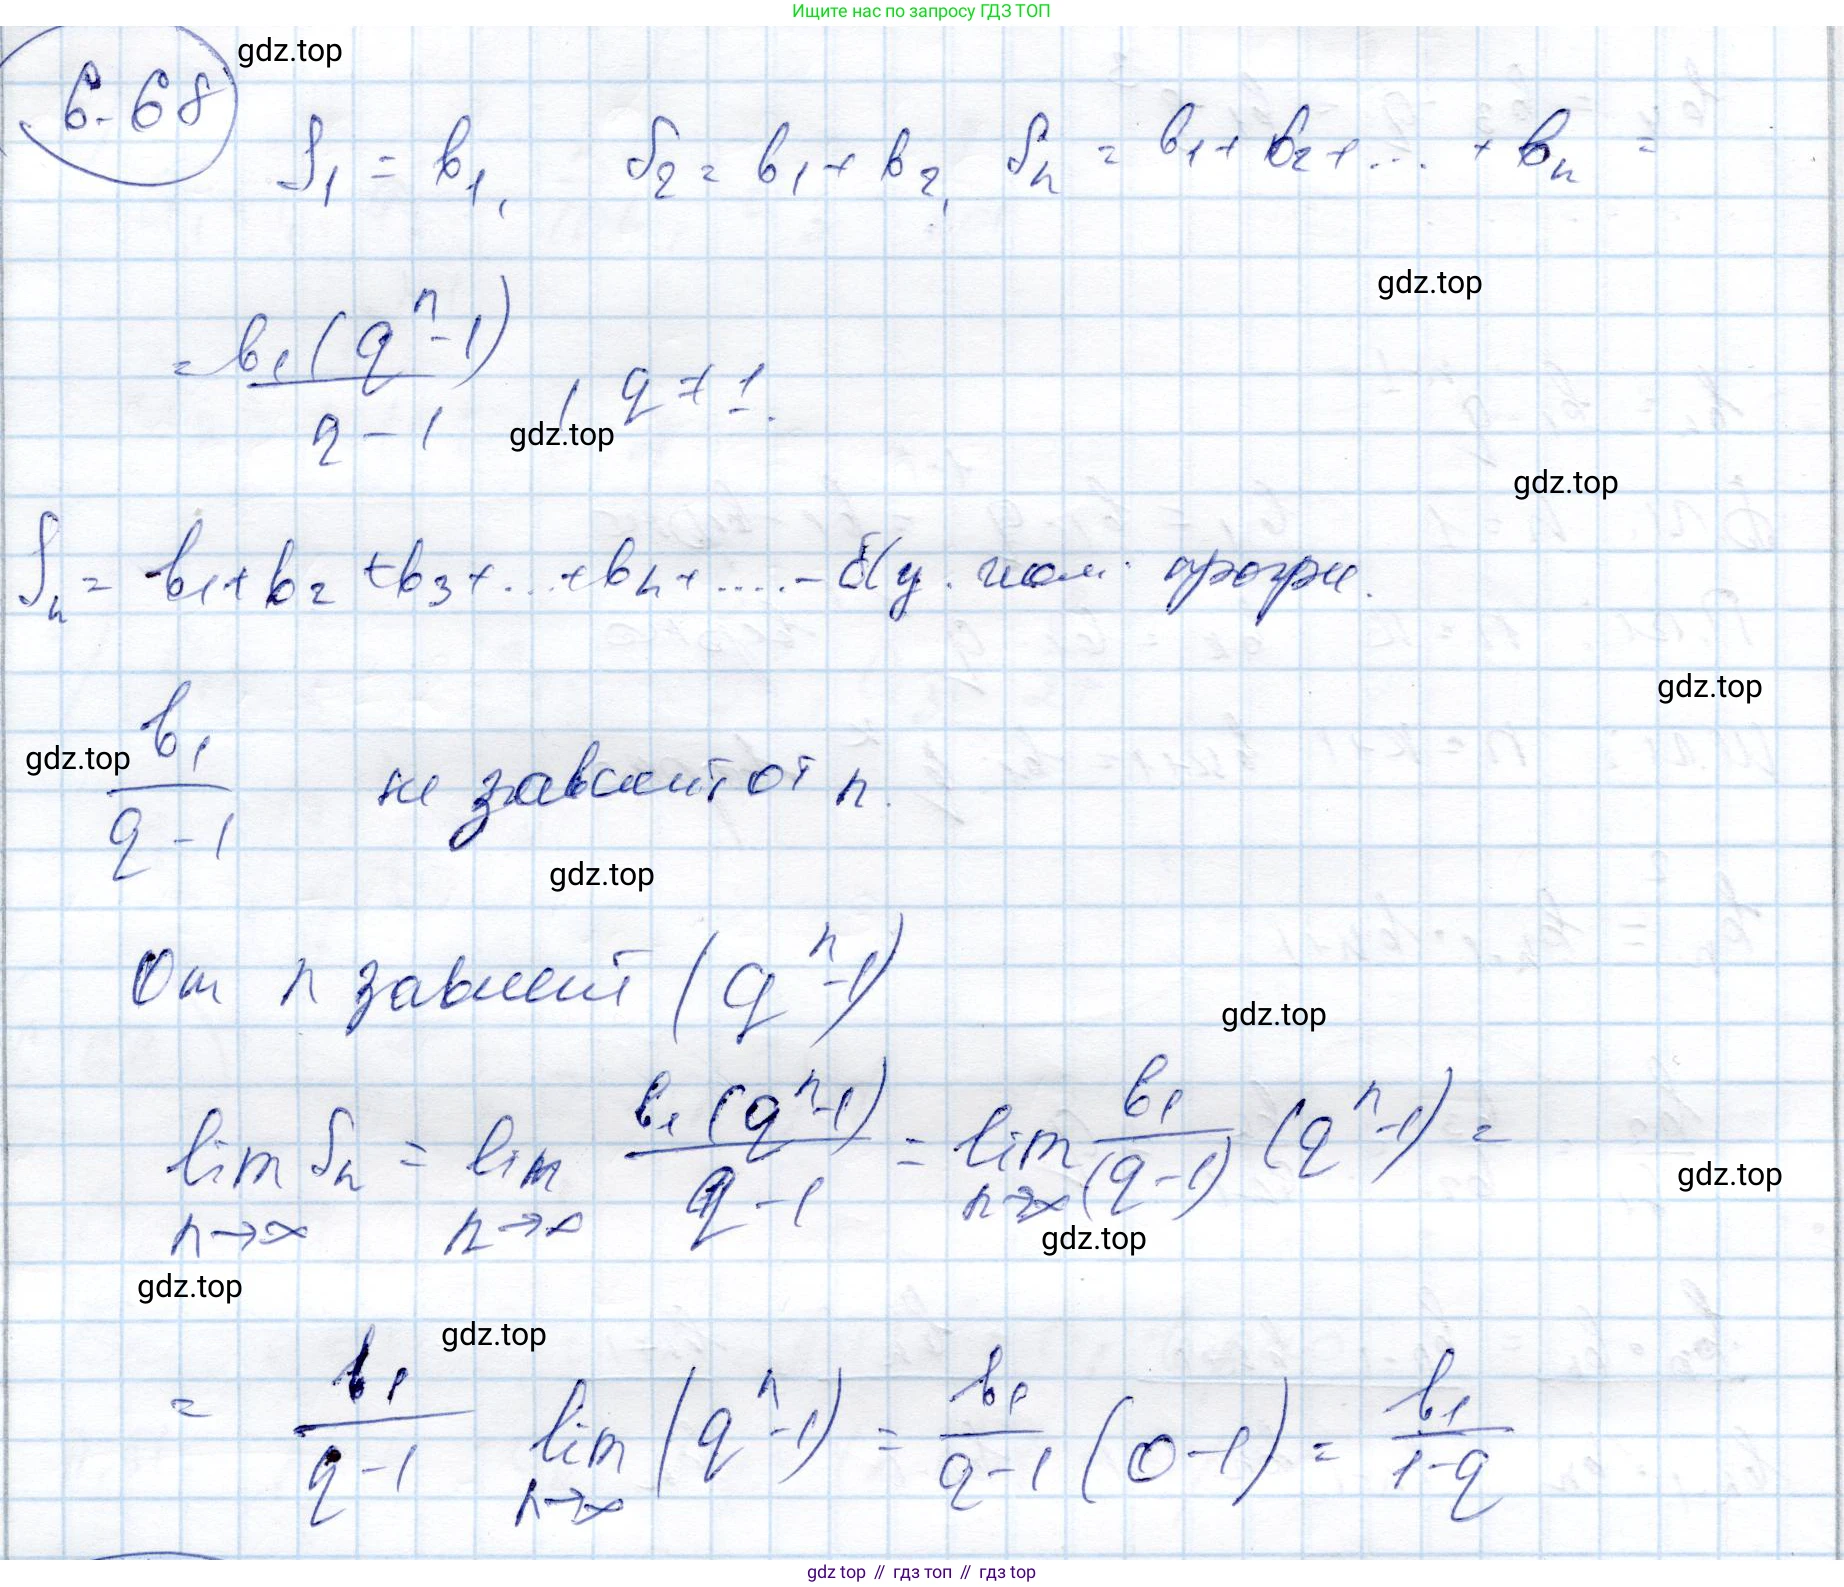 Ищите нас по запросу ГДЗ ТОП
gdz.top
6.68
S₁ = b₁, S₂ = b₁ + b₂, Sₙ = b₁ + b₂ + ... + bₙ =
gdz.top
= b₁(qⁿ-1) / (q-1), q ≠ 1.
gdz.top
gdz.top
Sₙ = b₁ + b₂ + b₃ + ... + bₙ + ..... - геом. прогрес.
gdz.top
gdz.top
b₁ / (q-1) не зависит от n.
gdz.top
От n зависит (qⁿ-1)
gdz.top
lim Sₙ = lim b₁(qⁿ-1) / (q-1) = lim b₁ / (q-1) (qⁿ-1) =
n→∞ n→∞ n→∞
gdz.top
gdz.top
gdz.top
gdz.top
= b₁ / (q-1) lim (qⁿ-1) = b₁ / (q-1) (0-1) = b₁ / (1-q)
n→∞
gdz top // гдз топ // гдз top